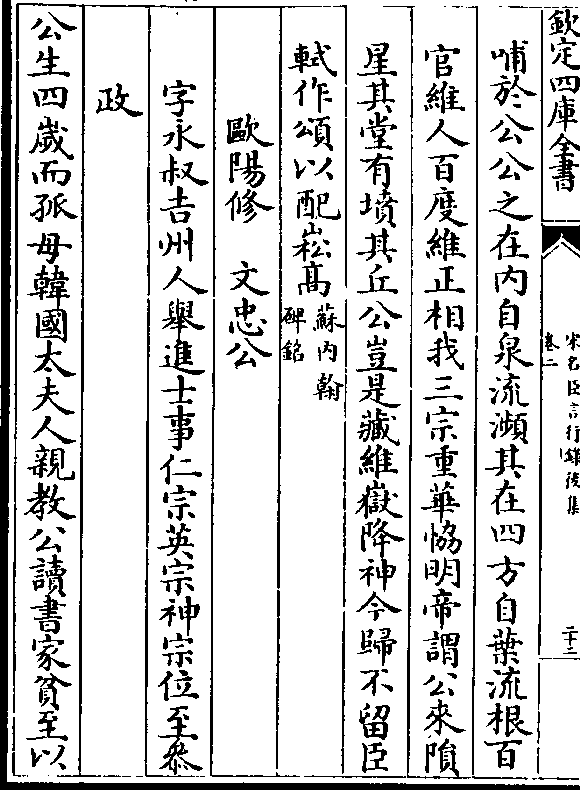 欽定四庫全書
宋名臣言行錄後集
卷二
二十三
哺於公公之在内自泉流瀕其在四方自葉流根百
官維人百度維正相我三宗重華恊明帝謂公來隕
星其堂有墳其丘公豈是藏維嶽降神今歸不留臣
軾作頌以配崧高蘇内翰
碑銘
歐陽修 文忠公
字永叔吉州人舉進士事仁宗英宗神宗位至叅
政
公生四嵗而孤母韓國太夫人親教公讀書家貧至以